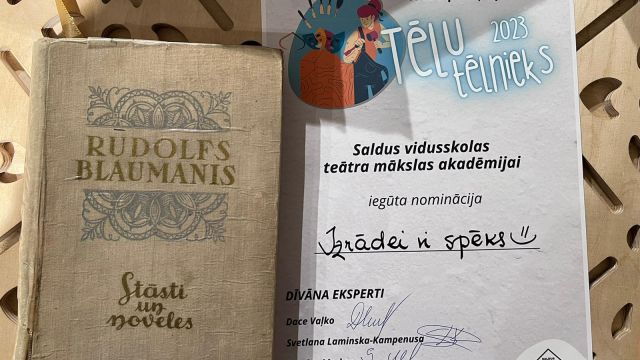 RUDOLFS
BLAUMANIS
Stāsti
un
noveles
2023
Tēlu
tēlnieks
Saldus vidusskolas
teātra mākslas akadēmijai
iegūta nominācija
Izrādei ir spēks
DĪVĀNA EKSPERTI
Dace Vaļko
Svetlana Laminska-Kampenusa